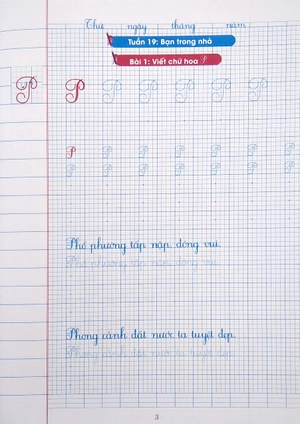 Thứ ngày tháng năm
Tuần 19: Bạn trong nhà
Bài 1: Viết chữ hoa P
P P P P P P P
P P P P P P P
P P P P P P P
Phố phường tấp nập, đông vui.
Phố phường tấp nập, đông vui.
Phong cảnh đất nước ta tuyệt đẹp.
Phong cảnh đất nước ta tuyệt đẹp.
3